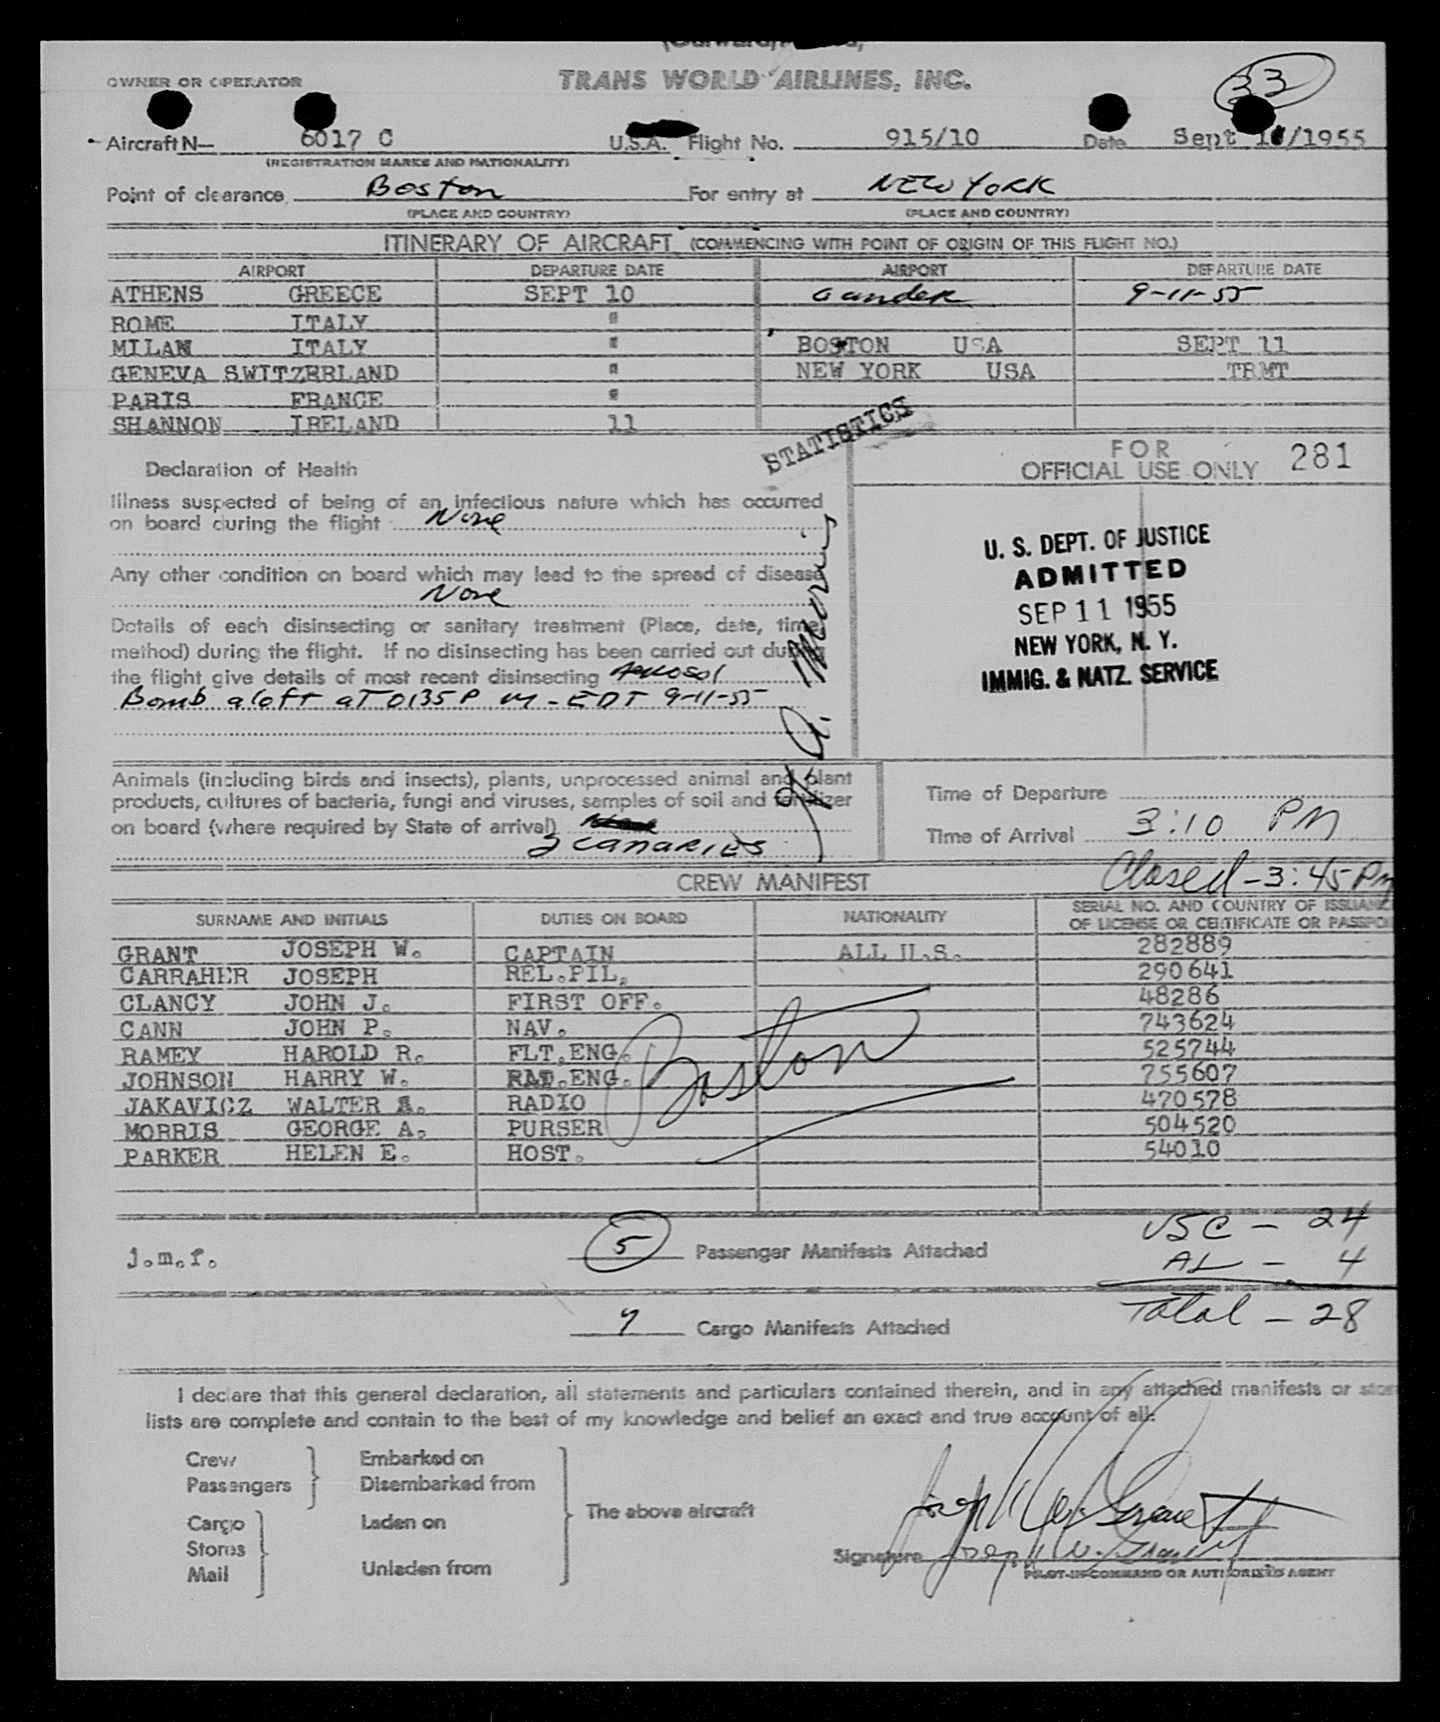 OWNER OR OPERATOR
TRANS WORLD AIRLINES, INC.
33
Aircraft N— 6017 C U.S.A. Flight No. 915/10 Date Sept /1955
(REGISTRATION MARKS AND NATIONALITY)
Point of clearance Boston For entry at NEW YORK
(PLACE AND COUNTRY) (PLACE AND COUNTRY)
ITINERARY OF AIRCRAFT (COMMENCING WITH POINT OF ORIGIN OF THIS FLIGHT NO.)
AIRPORT DEPARTURE DATE AIRPORT DEPARTURE DATE
ATHENS GREECE SEPT 10 Gander 9-11-55
ROME ITALY "
MILAN ITALY " BOSTON USA SEPT 11
GENEVA SWITZERLAND " NEW YORK USA TRMT
PARIS FRANCE "
SHANNON IRELAND 11
STATISTICS
FOR
OFFICIAL USE ONLY 281
Declaration of Health
Illness suspected of being of an infectious nature which has occurred
on board during the flight None
Any other condition on board which may lead to the spread of disease
None
Details of each disinsecting or sanitary treatment (Place, date, time,
method) during the flight. If no disinsecting has been carried out during
the flight give details of most recent disinsecting Aerosol
Bomb aloft at 0135 P M - EDT 9-11-55
A. Morris
U. S. DEPT. OF JUSTICE
ADMITTED
SEP 11 1955
NEW YORK, N. Y.
IMMIG. & NATZ. SERVICE
Animals (including birds and insects), plants, unprocessed animal and plant
products, cultures of bacteria, fungi and viruses, samples of soil and fertilizer
on board (where required by State of arrival)
2 CANARIES
Time of Departure
Time of Arrival 3:10 PM
Closed - 3:45 PM
CREW MANIFEST
SURNAME AND INITIALS DUTIES ON BOARD NATIONALITY SERIAL NO. AND COUNTRY OF ISSUANCE
OF LICENSE OR CERTIFICATE OR PASSPO
GRANT JOSEPH W. CAPTAIN ALL U.S. 282889
CARRAHER JOSEPH REL.PIL. 290641
CLANCY JOHN J. FIRST OFF. 48286
CANN JOHN P. NAV. 743624
RAMEY HAROLD R. FLT.ENG. 525744
JOHNSON HARRY W. RAD.ENG. 755607
JAKAVICZ WALTER A. RADIO 470578
MORRIS GEORGE A. PURSER 504520
PARKER HELEN E. HOST. 54010
Boston
j.m.f.
5 Passenger Manifests Attached
USC - 24
AL - 4
Total - 28
7 Cargo Manifests Attached
I declare that this general declaration, all statements and particulars contained therein, and in any attached manifests or stor
lists are complete and contain to the best of my knowledge and belief an exact and true account of all:
Crew Embarked on
Passengers Disembarked from
The above aircraft
Cargo Laden on
Stores
Mail Unladen from
Joseph W. Grant
Signature Joseph W. Grant
PILOT-IN-COMMAND OR AUTHORIZED AGENT